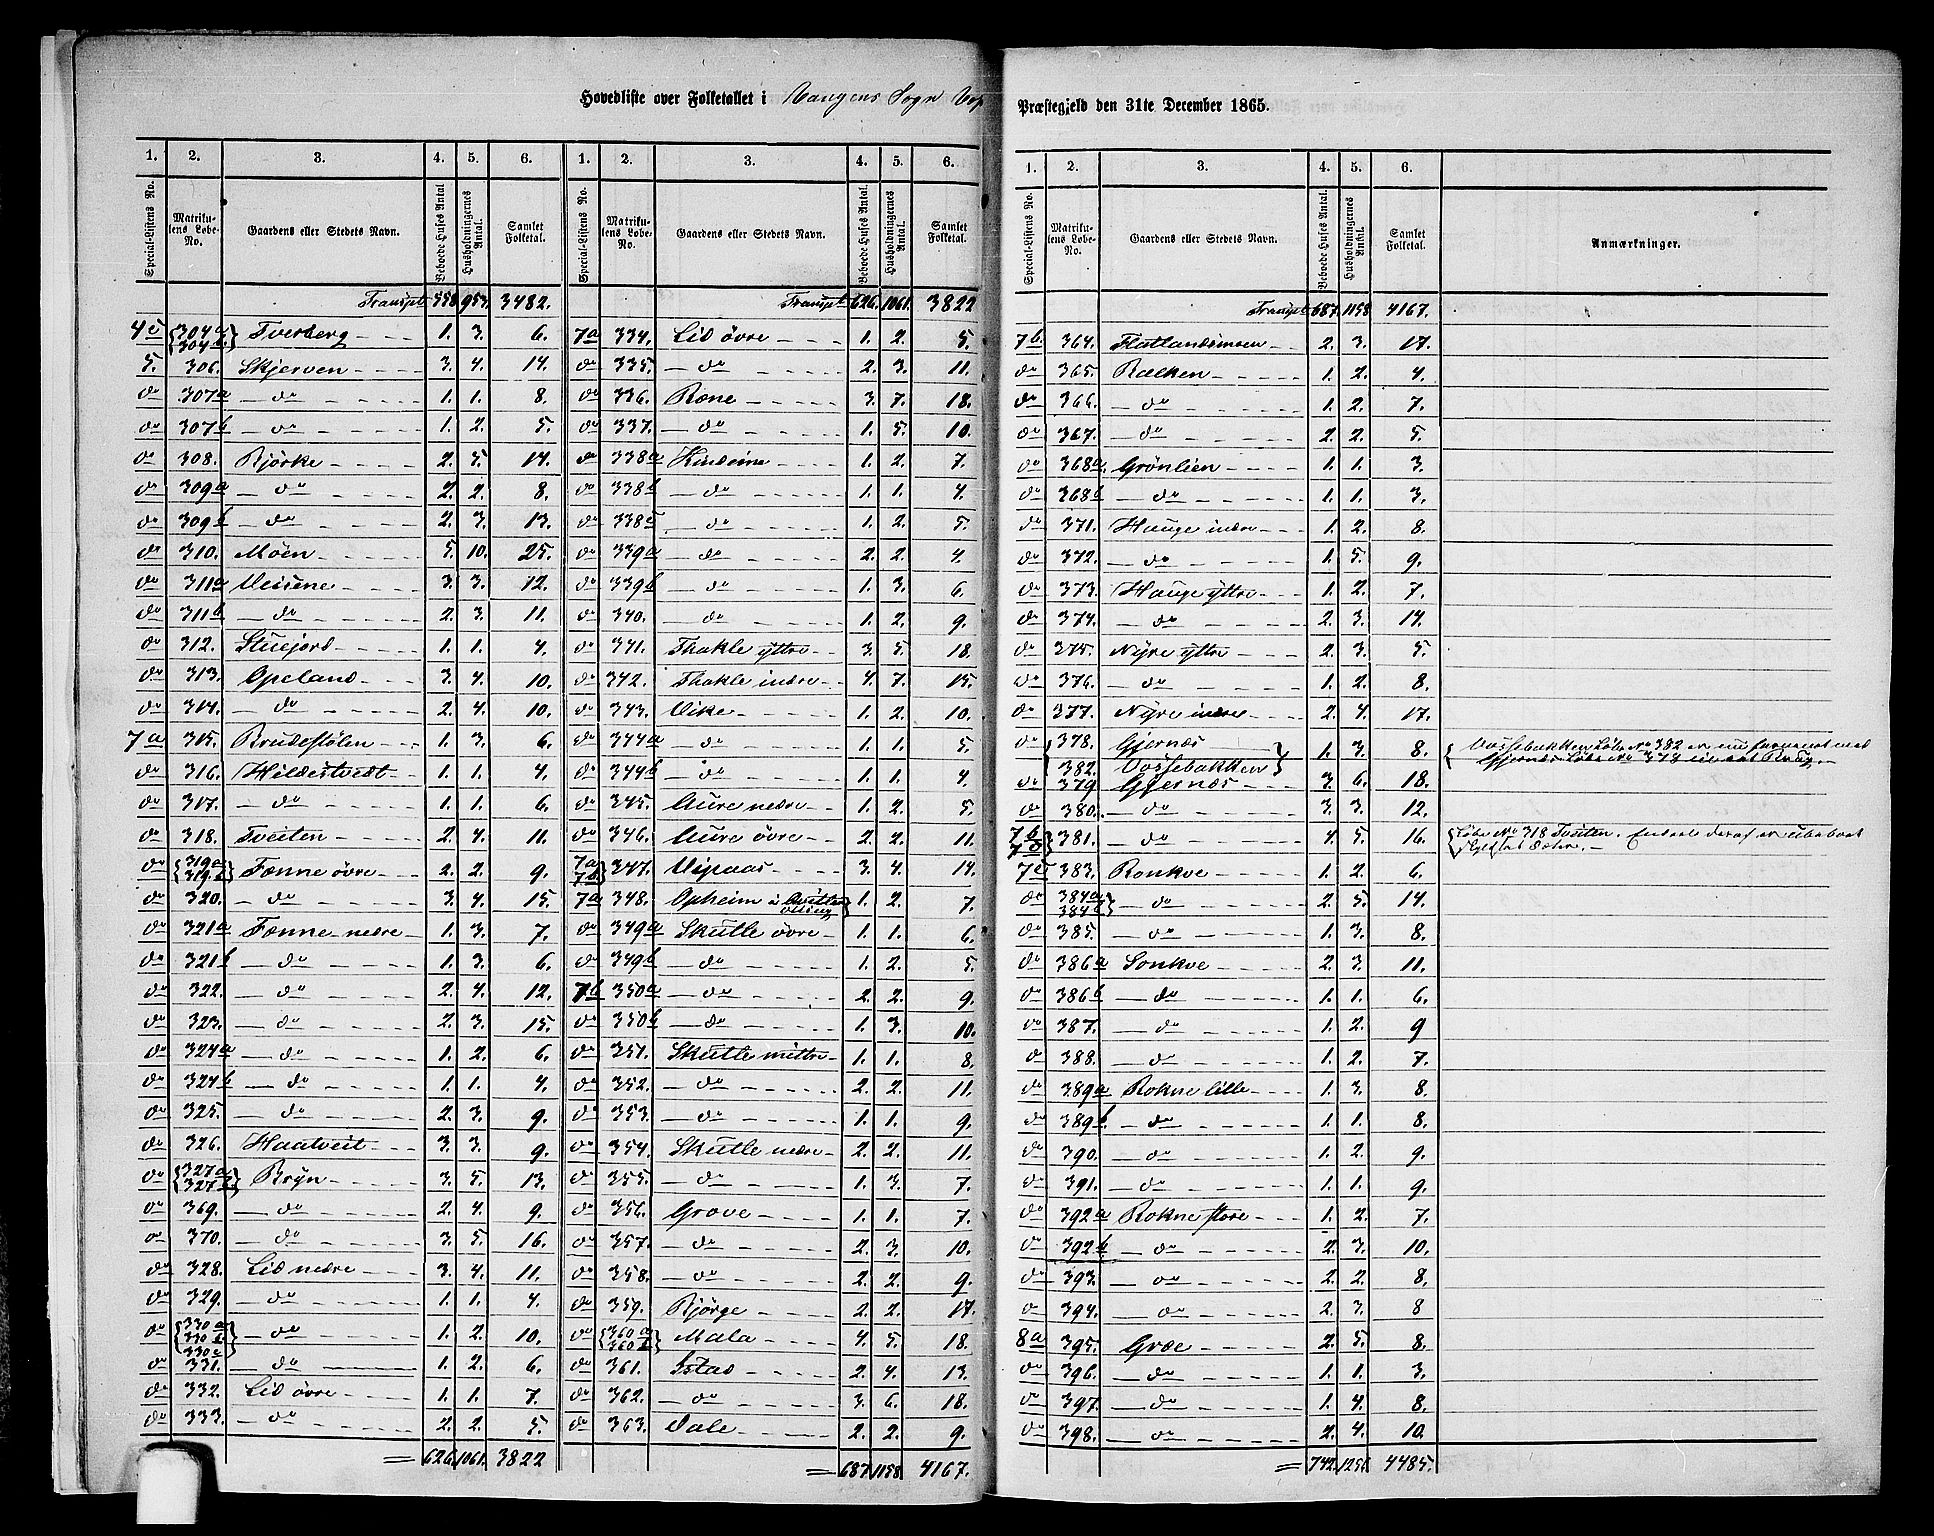 Hovedliste over Folketallet i Vangens Sogn
Præstegjeld den 31te December 1865.
1. 2. 3. 4. 5. 6.
Special-Listens No. Matrikulens Løbe-No. Gaardens eller Stedets Navn. Beboede Huses Antal Husholdningernes Antal. Samlet Folketal.
Transpt 958. 3482.
4c {304a 304b} Tverberg 1. 3. 6.
5. 306. Skjerven 3. 4. 14.
do 307a do 1. 1. 8.
do 307b do 1. 2. 5.
do 308. Bjørke 2. 5. 14.
do 309a do 2. 2. 8.
do 309b do 2. 3. 13.
do 310. Møen 5. 10. 25.
do 311a 3. 3. 12.
do 311b do 2. 3. 11.
do 312. 1. 1. 4.
do 313. Opeland 3. 4. 10.
do 314. do 2. 4. 10.
7a 315. Brudestølen 1. 3. 6.
do 316. Hildestvedt 1. 1. 4.
do 317. do 1. 1. 6.
do 318. Tveiten 2. 4. 11.
do {319a 319b} Fenne øvre 2. 2. 9.
do 320. do 3. 4. 15.
do 321a Fenne nedre 1. 3. 7.
do 321b do 1. 3. 6.
do 322. do 2. 4. 12.
do 323. do 2. 3. 15.
do 324a do 1. 2. 6.
do 324b do 1. 1. 4.
do 325. do 2. 3. 9.
do 326. Haatveit 3. 3. 9.
do {327a 327b} Bryn 3. 5. 13.
do 369. do 2. 4. 9.
do 370. do 3. 5. 16.
do 328. Lid nedre 3. 4. 11.
do 329. do 1. 1. 4.
do {330a 330b 330c} do 1. 2. 10.
do 331. do 1. 2. 6.
do 332. Lid øvre 1. 1. 7.
do 333. do 2. 2. 5.
= 626. 1061. 3822
1. 2. 3. 4. 5. 6.
Special-Listens No. Matrikulens Løbe-No. Gaardens eller Stedets Navn. Beboede Huses Antal. Husholdningernes Antal. Samlet Folketal.
Transpt 626. 1061. 3822
7a 334. Lid øvre 1. 2. 5.
do 335. do 2. 3. 11.
do 336. Røne 3. 7. 18.
do 337. do 1. 5. 10.
do 338a 1. 2. 7.
do 338b do 1. 1. 4.
do 338c do 1. 2. 5.
do 339a do 2. 2. 4.
do 339b do 1. 3. 6.
do 340. do 1. 2. 9.
do 341. Thakle yttre 3. 5. 18.
do 342. Thakle indre 4. 7. 15.
do 343. Vike 1. 2. 10.
do 344a do 1. 1. 5.
do 344b do 1. 1. 4.
do 345. Aure nedre 1. 2. 5.
do 346. Aure øvre 2. 2. 11.
7a 7b} 347. Uppaas 3. 4. 14.
7a 348. Opheim i 1. 2. 7.
do 349a Skutle øvre 1. 1. 6.
do 349b do 1. 2. 5.
7b 350a do 2. 2. 9.
do 350b do 1. 3. 10.
do 351. Skutle mittre 1. 1. 8.
do 352. do 2. 2. 11.
do 353. do 1. 1. 9.
do 354. Skutle nedre 2. 2. 11.
do 355. do 1. 3. 7.
do 356. Grove 1. 1. 7.
do 357. do 2. 3. 10.
do 358. do 2. 2. 9.
do 359. Bjørge 2. 2. 17.
do {360a 360b} Mala 4. 5. 18.
do 361. Istad 2. 4. 13.
do 362. do 3. 6. 18.
do 363. Dale 2. 2. 9.
= 687. 1158. 4167.
1. 2. 3. 4. 5. 6.
Special-Listens No. Matrikulens Løbe-No. Gaardens eller Stedets Navn. Beboede Huses Antal. Husholdningernes Antal. Samlet Folketal. Anmærkninger.
Transpt 687. 1158 4167.
7b. 364. Flatlandsmoen 2. 3. 17.
do 365. Rækken 1. 2. 4.
do 366. do 1. 2. 7.
do 367. do 2. 2. 5.
do 368a. Grønlien 1. 1. 3.
do 368b do 1. 1. 3.
do 371. Hauge indre 1. 2. 8.
do 372. do 1. 5. 9.
do 373. Hauge yttre 1. 2. 7.
do 374. do 2. 3. 14.
do 375. Nyre yttre 2. 3. 5.
do 376. do 1. 2. 8.
do 377. Nyre indre 2. 4. 17.
do {378. 382. Gjernæs Vossebakken} 1. 3. 8. {Vossebakken Løbe No 382 er nu forenet med Gjernæs Løbe No 378 til et Brug.
do 379 Gjernæs 3. 6. 18.
do 380. do 3. 3. 12.
7b 381. do 4. 5. 16. {Løbe No 318 Tveiten.
7c 383. Ronkve 1. 2. 6.
do 384a 384b} do 2. 5. 14.
do 385. do 1. 3. 8.
do 386a Sonkve 2. 3. 11.
do 386b do 1. 1. 6.
do 387. do 1. 2. 9
do 388. do 1. 2. 7.
do 389a Rokne lille 1. 3. 8.
do 389b. do 1. 1. 8.
do 390. do 1. 2. 9.
do 391. do 1. 1. 9.
do 392a Rokne store 1. 2. 7.
do 392b do 2. 3. 10.
do 393. do 2. 2. 8.
do 394. do 2. 3. 8
8a 395. Græe 2. 5. 8.
do 396. do 1. 1. 3.
do 397. do 1. 4. 8.
do 398. do 2. 4. 10.
= 742. 1256. 4485.